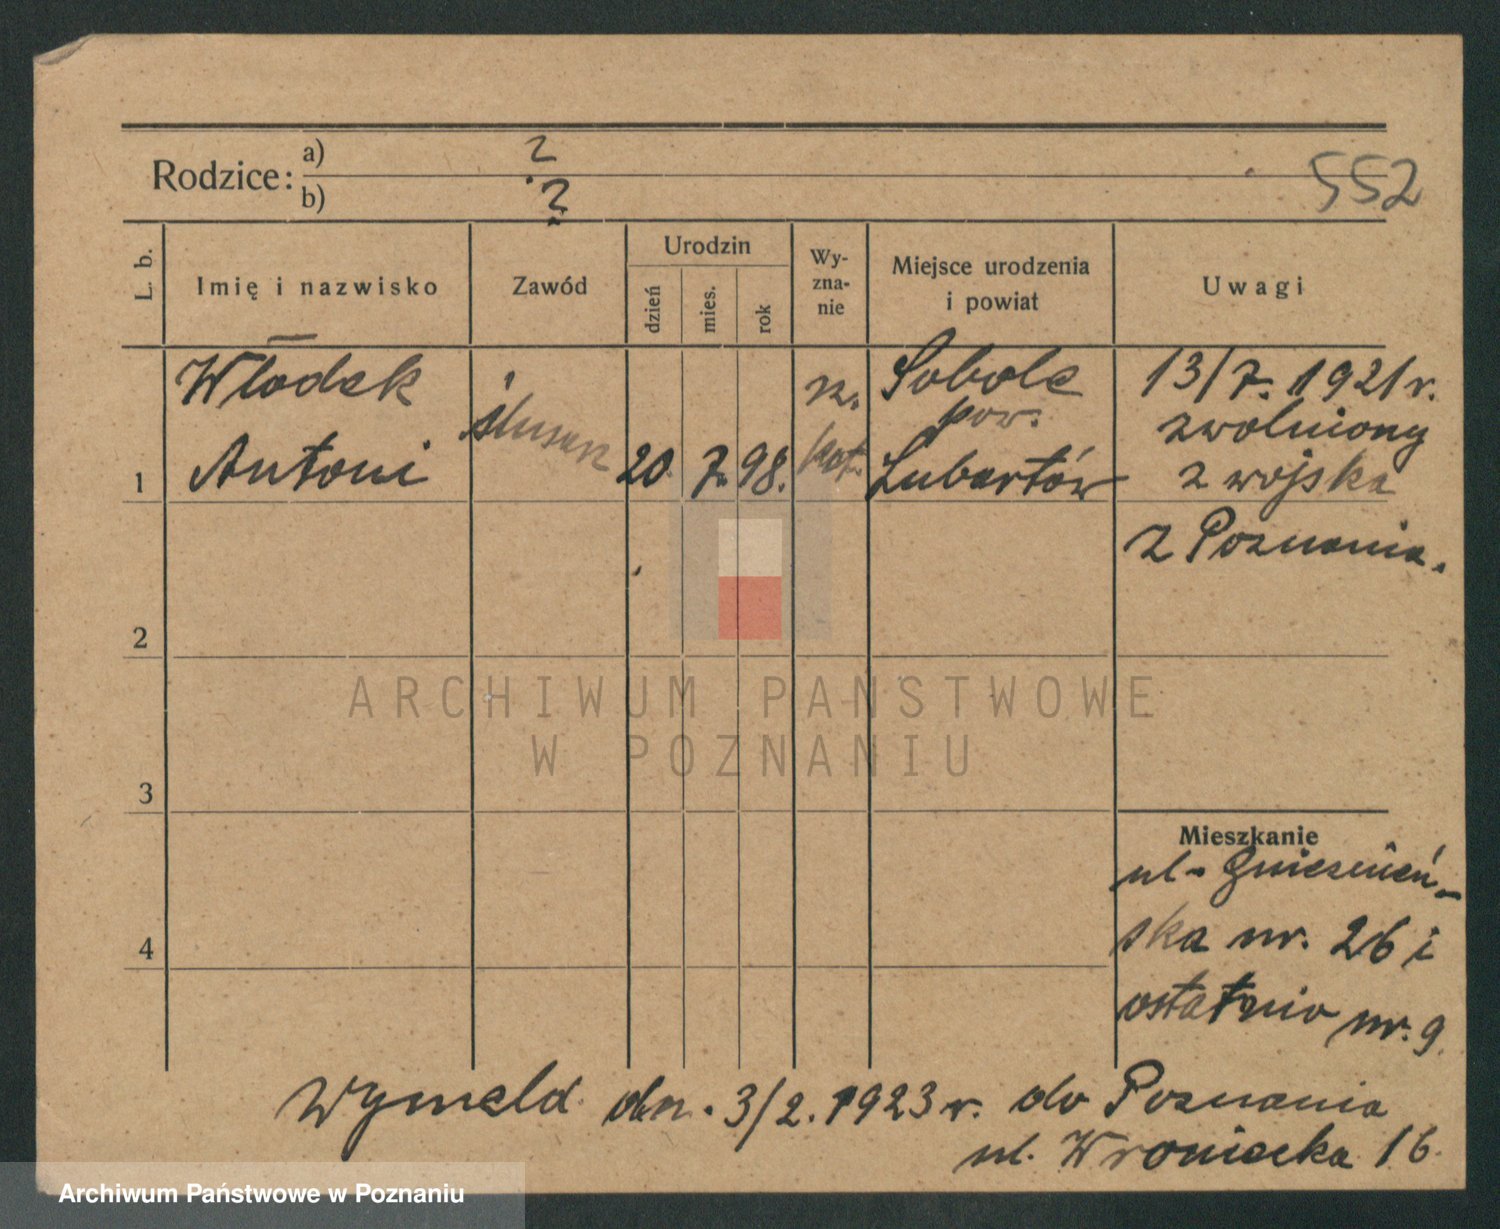 Rodzice: a) ?
b) ?
552
L. b.
Imię i nazwisko
Zawód
Urodzin
dzień
mies.
rok
Wy-
zna-
nie
Miejsce urodzenia
i powiat
Uwagi
1
Włodek
Antoni
ślusarz
20. 7. 98.
rz.
kat.
Sobole
pow.
Lubartów
13/7. 1921 r.
zwolniony
z wojska
z Poznania.
2
3
4
ARCHIWUM PAŃSTWOWE
W POZNANIU
Mieszkanie
ul. Gnieźnień-
ska nr. 26 i
ostatnio nr. 9.
Wymeld. dn. 3/2. 1923 r. do Poznania
ul. Wroniecka 16.
Archiwum Państwowe w Poznaniu